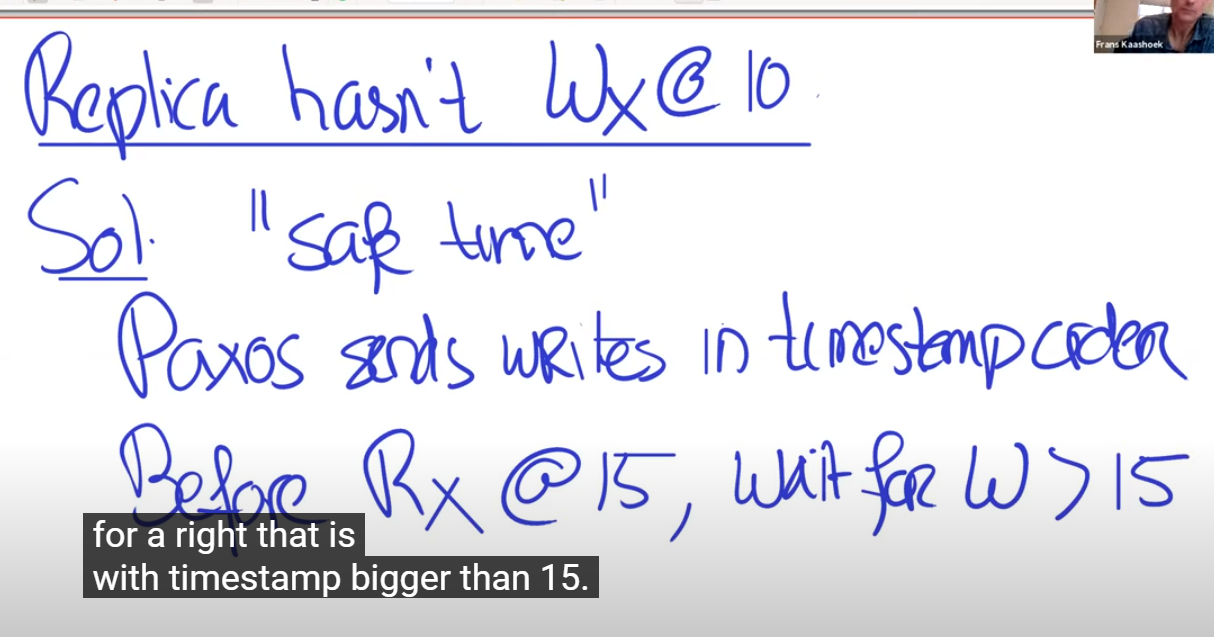 Frans Kaashoek
Replica hasn't Wx@10
Sol. "safe time"
Paxos sends writes in timestamp order
Before Rx @ 15, wait for W > 15
for a right that is
with timestamp bigger than 15.